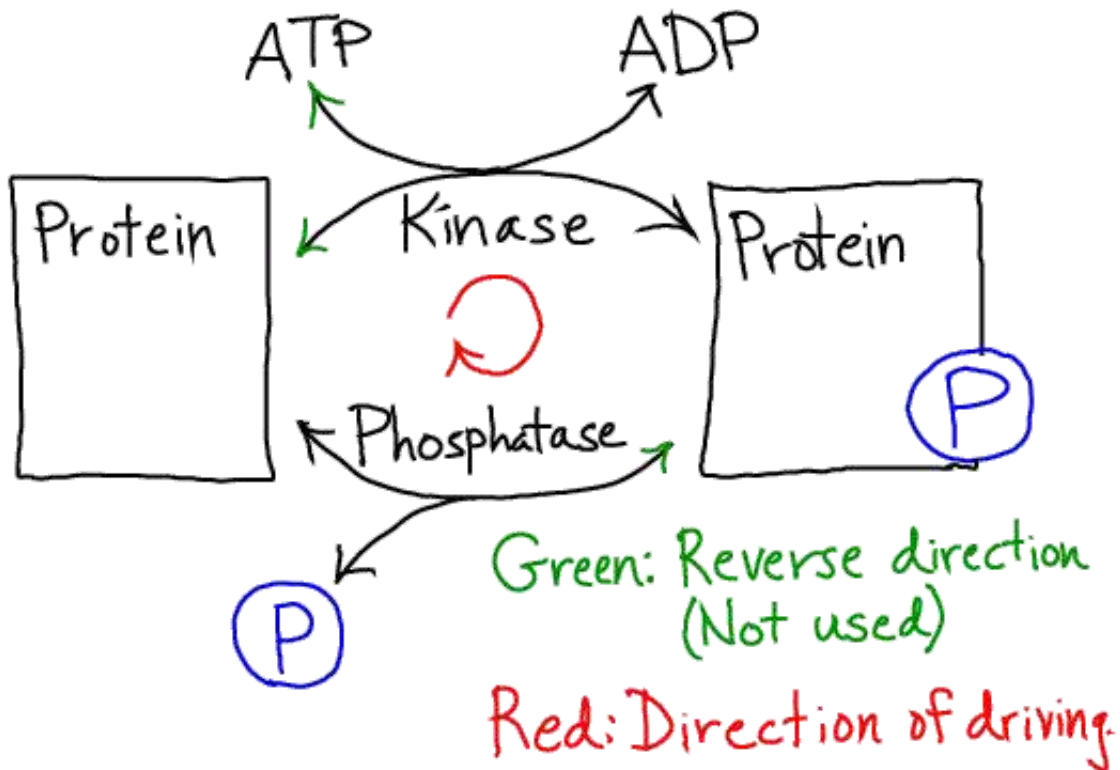 ATP
ADP
Protein
Kinase
Protein
Phosphatase
P
P
Green: Reverse direction
(Not used)
Red: Direction of driving.